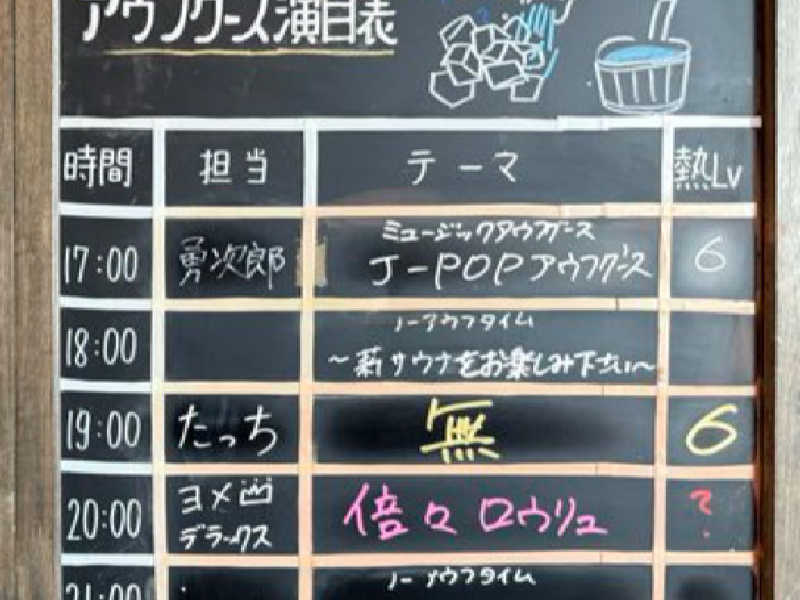 アウフグース演目表
時間 担当 テーマ 熱Lv
17:00 勇次郎 ミュージックアウフグース 6
J-POPアウフグース
18:00 ノーアウフタイム
~薪サウナをお楽しみ下さい~
19:00 たっち 無 6
20:00 ヨメ 倍々ロウリュ ?
デラックス
21:00 ノーアウフタイム